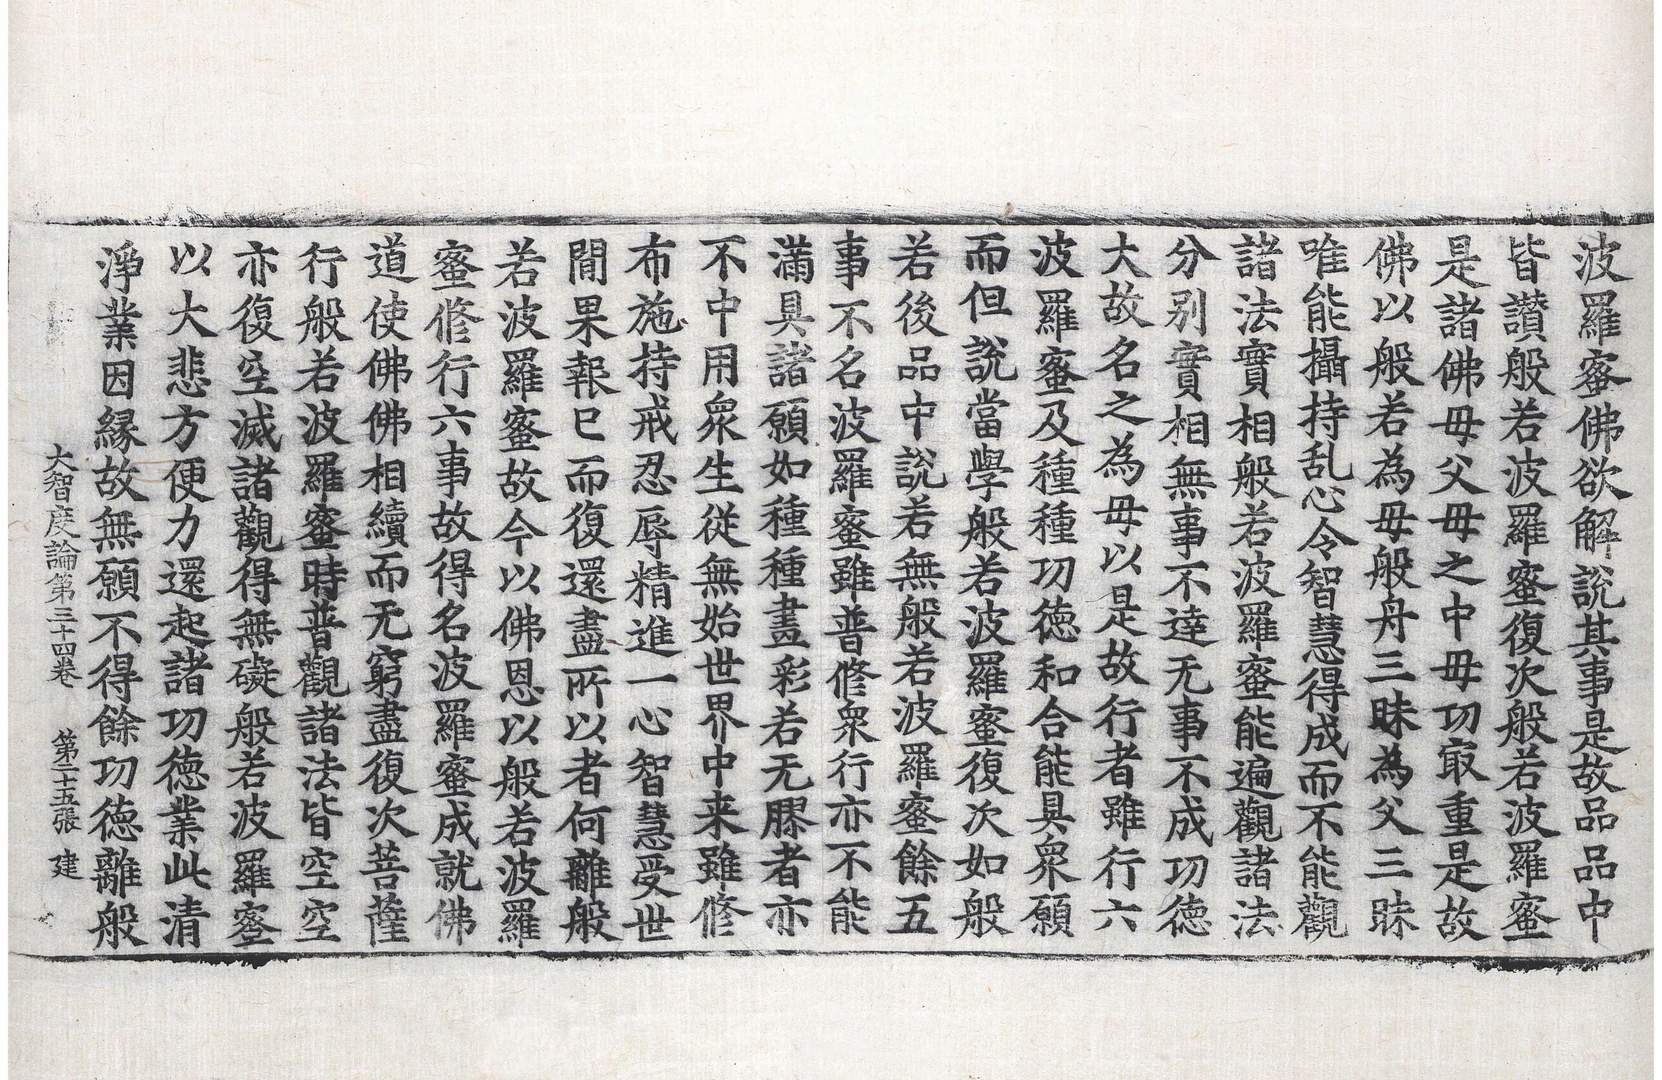 波羅蜜佛欲解說其事是故品品中
皆讃般若波羅蜜復次般若波羅蜜
是諸佛母父母之中母功㝡重是故
佛以般若為母般舟三昧為父三昧
唯能攝持乱心令智慧得成而不能觀
諸法實相般若波羅蜜能遍觀諸法
分別實相無事不達无事不成功德
大故名之為母以是故行者雖行六
波羅蜜及種種功德和合能具衆願
而但說當學般若波羅蜜復次如般
若後品中說若無般若波羅蜜餘五
事不名波羅蜜雖普修衆行亦不能
滿具諸願如種種畫彩若无膠者亦
不中用衆生從無始世界中来雖修
布施持戒忍辱精進一心智慧受世
閒果報已而復還盡所以者何離般
若波羅蜜故今以佛恩以般若波羅
蜜修行六事故得名波羅蜜成就佛
道使佛佛相續而无窮盡復次菩薩
行般若波羅蜜時普觀諸法皆空空
亦復空滅諸觀得無礙般若波羅蜜
以大悲方便力還起諸功德業此清
淨業因緣故無願不得餘功德離般
大智度論第三十四卷 第二十五張 建